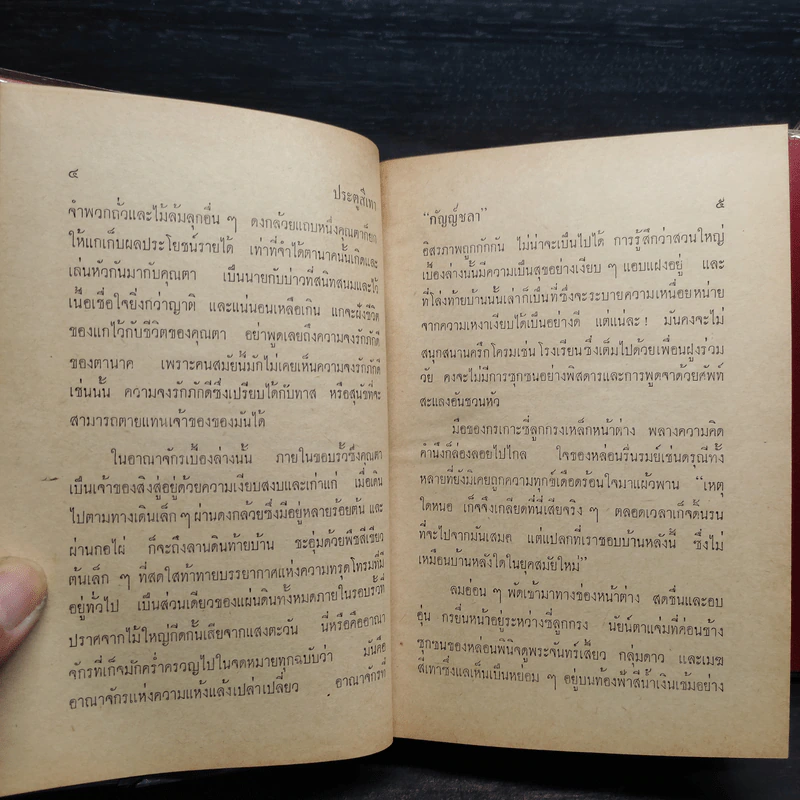 ๔
ประตูสีเทา
จำพวกถั่วและไม้ล้มลุกอื่น ๆ ดงกล้วยแถบหนึ่งคุณตาก็ยก
ให้แกเก็บผลประโยชน์รายได้ เท่าที่จำได้ตานาคนั้นเกิดและ
เล่นหัวกันมากับคุณตา เป็นนายกับบ่าวที่สนิทสนมและไว้
เนื้อเชื่อใจยิ่งกว่าญาติ และแน่นอนเหลือเกิน แกจะฝังชีวิต
ของแกไว้กับชีวิตของคุณตา อย่าพูดเลยถึงความจงรักภักดี
ของตานาค เพราะคนสมัยนี้มักไม่เคยเห็นความจงรักภักดี
เช่นนั้น ความจงรักภักดีซึ่งเปรียบได้กับทาส หรือสุนัขที่จะ
สามารถตายแทนเจ้าของของมันได้
ในอาณาจักรเบื้องล่างนั้น ภายในขอบรั้วซึ่งคุณตา
เป็นเจ้าของสิงสู่อยู่ด้วยความเงียบสงบและเก่าแก่ เมื่อเดิน
ไปตามทางเดินเล็ก ๆ ผ่านดงกล้วยซึ่งมีอยู่หลายร้อยต้น และ
ผ่านกอไผ่ ก็จะถึงลานดินท้ายบ้าน ชะอุ่มด้วยพืชสีเขียว
ต้นเล็ก ๆ ที่สดใสท้าทายบรรยากาศแห่งความทรุดโทรมที่มี
อยู่ทั่วไป เป็นส่วนเดียวของแผ่นดินทั้งหมดภายในรอบรั้วที่
ปราศจากไม้ใหญ่กีดกั้นเสียจากแสงตะวัน นี่หรือคืออาณา
จักรที่เก็จมักคร่ำครวญไปในจดหมายทุกฉบับว่า มันคือ
อาณาจักรแห่งความแห้งแล้งเปล่าเปลี่ยว อาณาจักรที่
“กัญญ์ชลา”
๕
อิสรภาพถูกกักกัน ไม่น่าจะเป็นไปได้ การรู้สึกว่าสวนใหญ่
เบื้องล่างนั้นมีความเป็นสุขอย่างเงียบ ๆ แอบแฝงอยู่ และ
ที่โล่งท้ายบ้านนั้นเล่าก็เป็นที่ซึ่งจะระบายความเหนื่อยหน่าย
จากความเหงาเงียบได้เป็นอย่างดี แต่แน่ละ ! มันคงจะไม่
สนุกสนานครึกโครมเช่นโรงเรียนซึ่งเต็มไปด้วยเพื่อนฝูงร่วม
วัย คงจะไม่มีการซุกซนอย่างพิสดารและการพูดจาด้วยศัพท์
สะแลงอันชวนหัว
มือของกรเกาะซี่ลูกกรงเหล็กหน้าต่าง พลางความคิด
คำนึงก็ล่องลอยไปไกล ใจของหล่อนรื่นรมย์เช่นดรุณีทั้ง
หลายที่ยังมิเคยถูกความทุกข์เดือดร้อนใจมาแผ้วพาน “เหตุ
ใดหนอ เก็จจึงเกลียดที่นี่เสียจริง ๆ ตลอดเวลาเก็จดิ้นรน
ที่จะไปจากมันเสมอ แต่แปลกที่เราชอบบ้านหลังนี้ ซึ่งไม่
เหมือนบ้านหลังใดในยุคสมัยใหม่”
ลมอ่อน ๆ พัดเข้ามาทางช่องหน้าต่าง สดชื่นและอบ
อุ่น กรยื่นหน้าอยู่ระหว่างซี่ลูกกรง นัยน์ตาแจ่มที่ค่อนข้าง
ซุกซนของหล่อนพินิจดูพระจันทร์เสี้ยว กลุ่มดาว และเมฆ
สีเทาซึ่งแลเห็นเป็นหย่อม ๆ อยู่บนท้องฟ้าสีน้ำเงินเข้มอย่าง